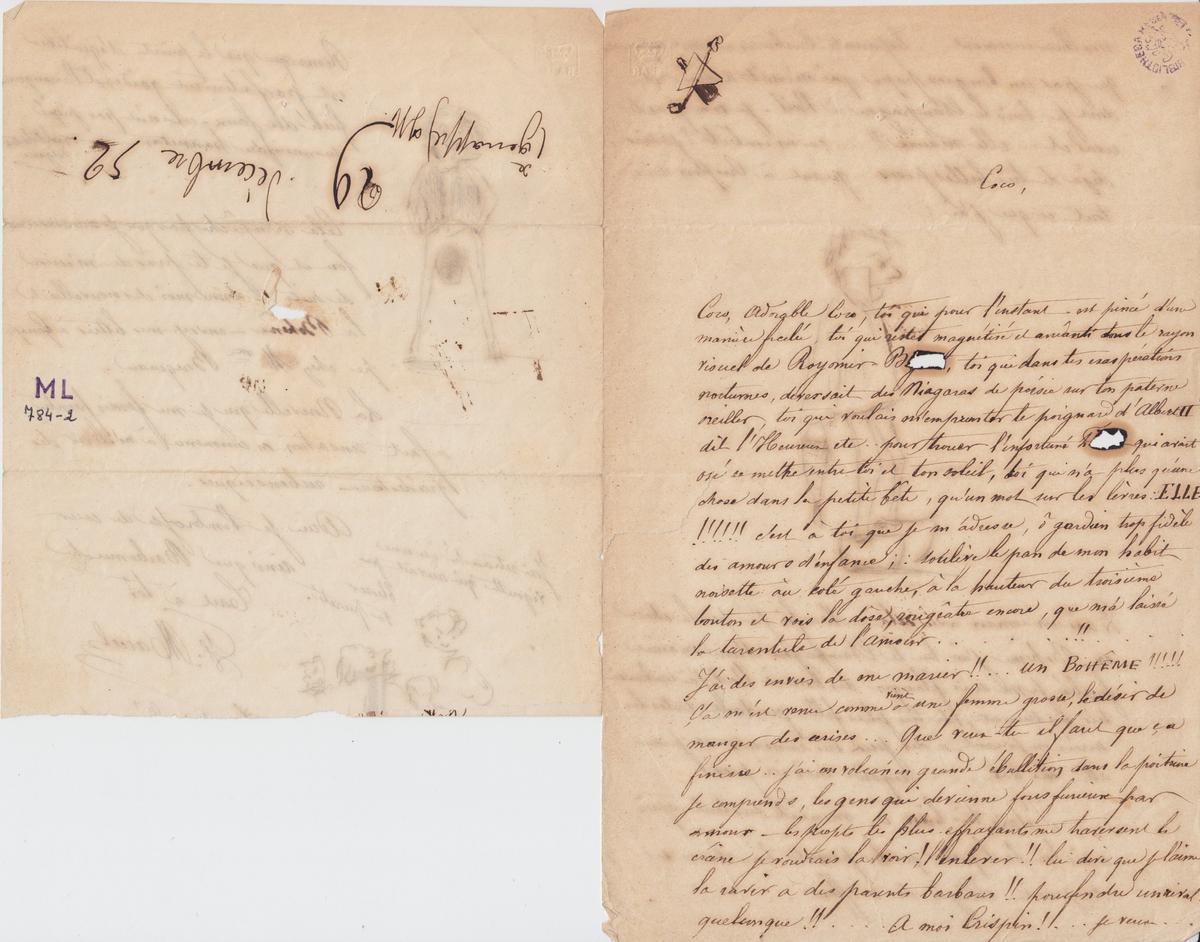 29 décembre 52.
ML
784-2
Coco,
Coco, adorable Coco, toi qui pour l'instant est pincé d'un
manière ficelé, toi qui restes magnétisé et anéanti sous le rayon
visuel de Royomir-B toi qui dans tes exaspérations
nocturnes, déversait des Niagaras de poésie sur ton paterne
oreiller, toi que voulais m'emprunter le poignard d'Albert II
dit l'Heureux etc.. pour trouer l'infortuné qui avait
osé se mettre entre toi et ton soleil, toi qui n'a plus qu'une
chose dans la petite bête, qu'un mot sur les lèvres: ELLE
!!!!!! c'est à toi que je m'adresse, ô gardien trop fidèle
des amours d'enfance; : soulève le pan de mon habit
noisette au coté gauche, à la hauteur du troisième
bouton et vois la rougeâtre encore, que m'a laissé
la tarentule de l'amour . . . . . !!
J'ai des envies de me marier!! ... un BOHÊME !!!!!
Ça m'est venu comme vient à une femme grosse, le désir de
manger des cerises... Que veux-tu il faut que ça
finisse.. j'ai un volcan en grande ébullition dans la poitrine
je comprends, les gens qui devienne fous furieux par
amour - les projets les plus effrayants me traversent le
crâne je voudrais la voir! l'enlever!! lui dire que je l'aime
la ravir à des parents barbares!! pourfendre un rival
quelconque!! .... A moi Crispin! ... je veux ..